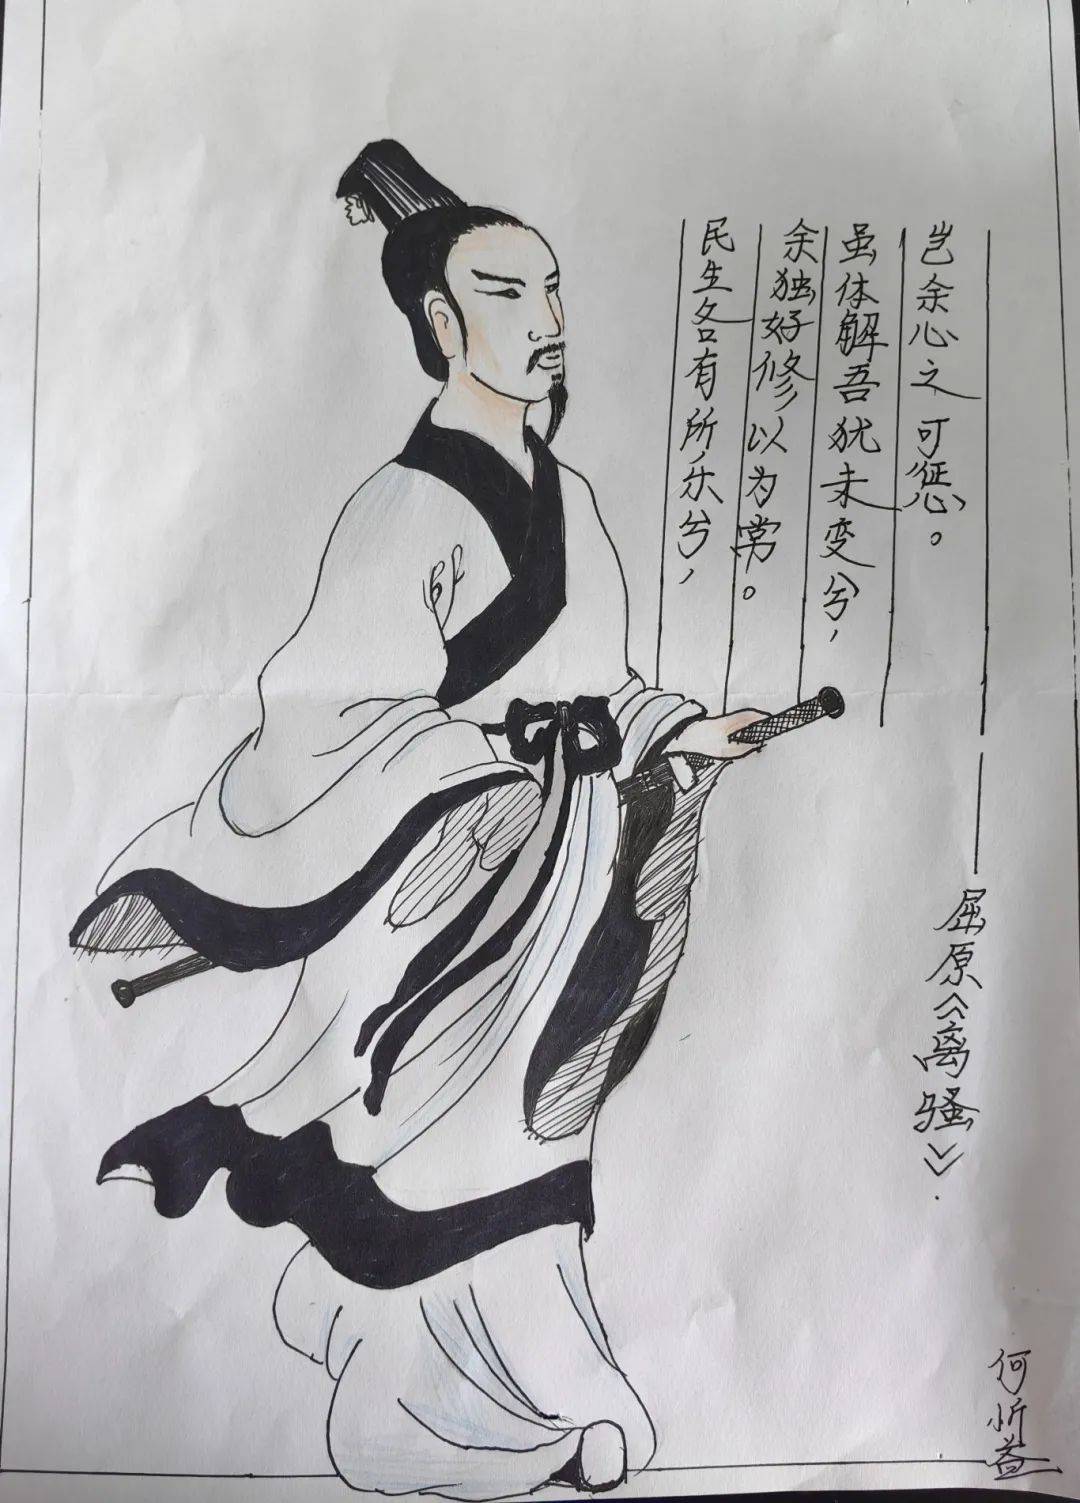 民生各有所乐兮，
余独好修以为常。
虽体解吾犹未变兮，
岂余心之可惩。
——屈原《离骚》.
何忻益